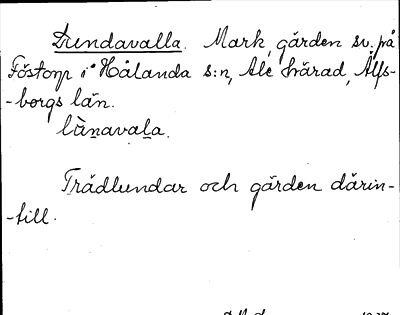 Lundavalla. Mark, gården sv. på
Föstorp i Hålanda s:n, Ale härad, Älfs-
-borgs län.
lu̇navala.
Trädlundar och gården därin-
-till.